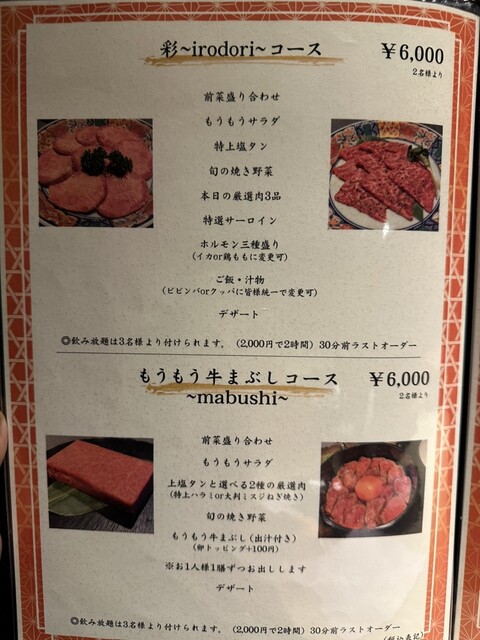 彩~irodori~コース
￥6,000
2名様より
前菜盛り合わせ
もうもうサラダ
特上塩タン
旬の焼き野菜
本日の厳選肉3品
特選サーロイン
ホルモン三種盛り
(イカor鶏ももに変更可)
ご飯・汁物
(ビビンバorクッパに皆様統一で変更可)
デザート
◎飲み放題は3名様より付けられます。(2,000円で2時間) 30分前ラストオーダー
もうもう牛まぶしコース
￥6,000
~mabushi~
2名様より
前菜盛り合わせ
もうもうサラダ
上塩タンと選べる2種の厳選肉
(特上ハラミor大判ミスジねぎ焼き)
旬の焼き野菜
もうもう牛まぶし(出汁付き)
(卵トッピング+100円)
※お1人様1膳ずつお出しします
デザート
◎飲み放題は3名様より付けられます。(2,000円で2時間) 30分前ラストオーダー